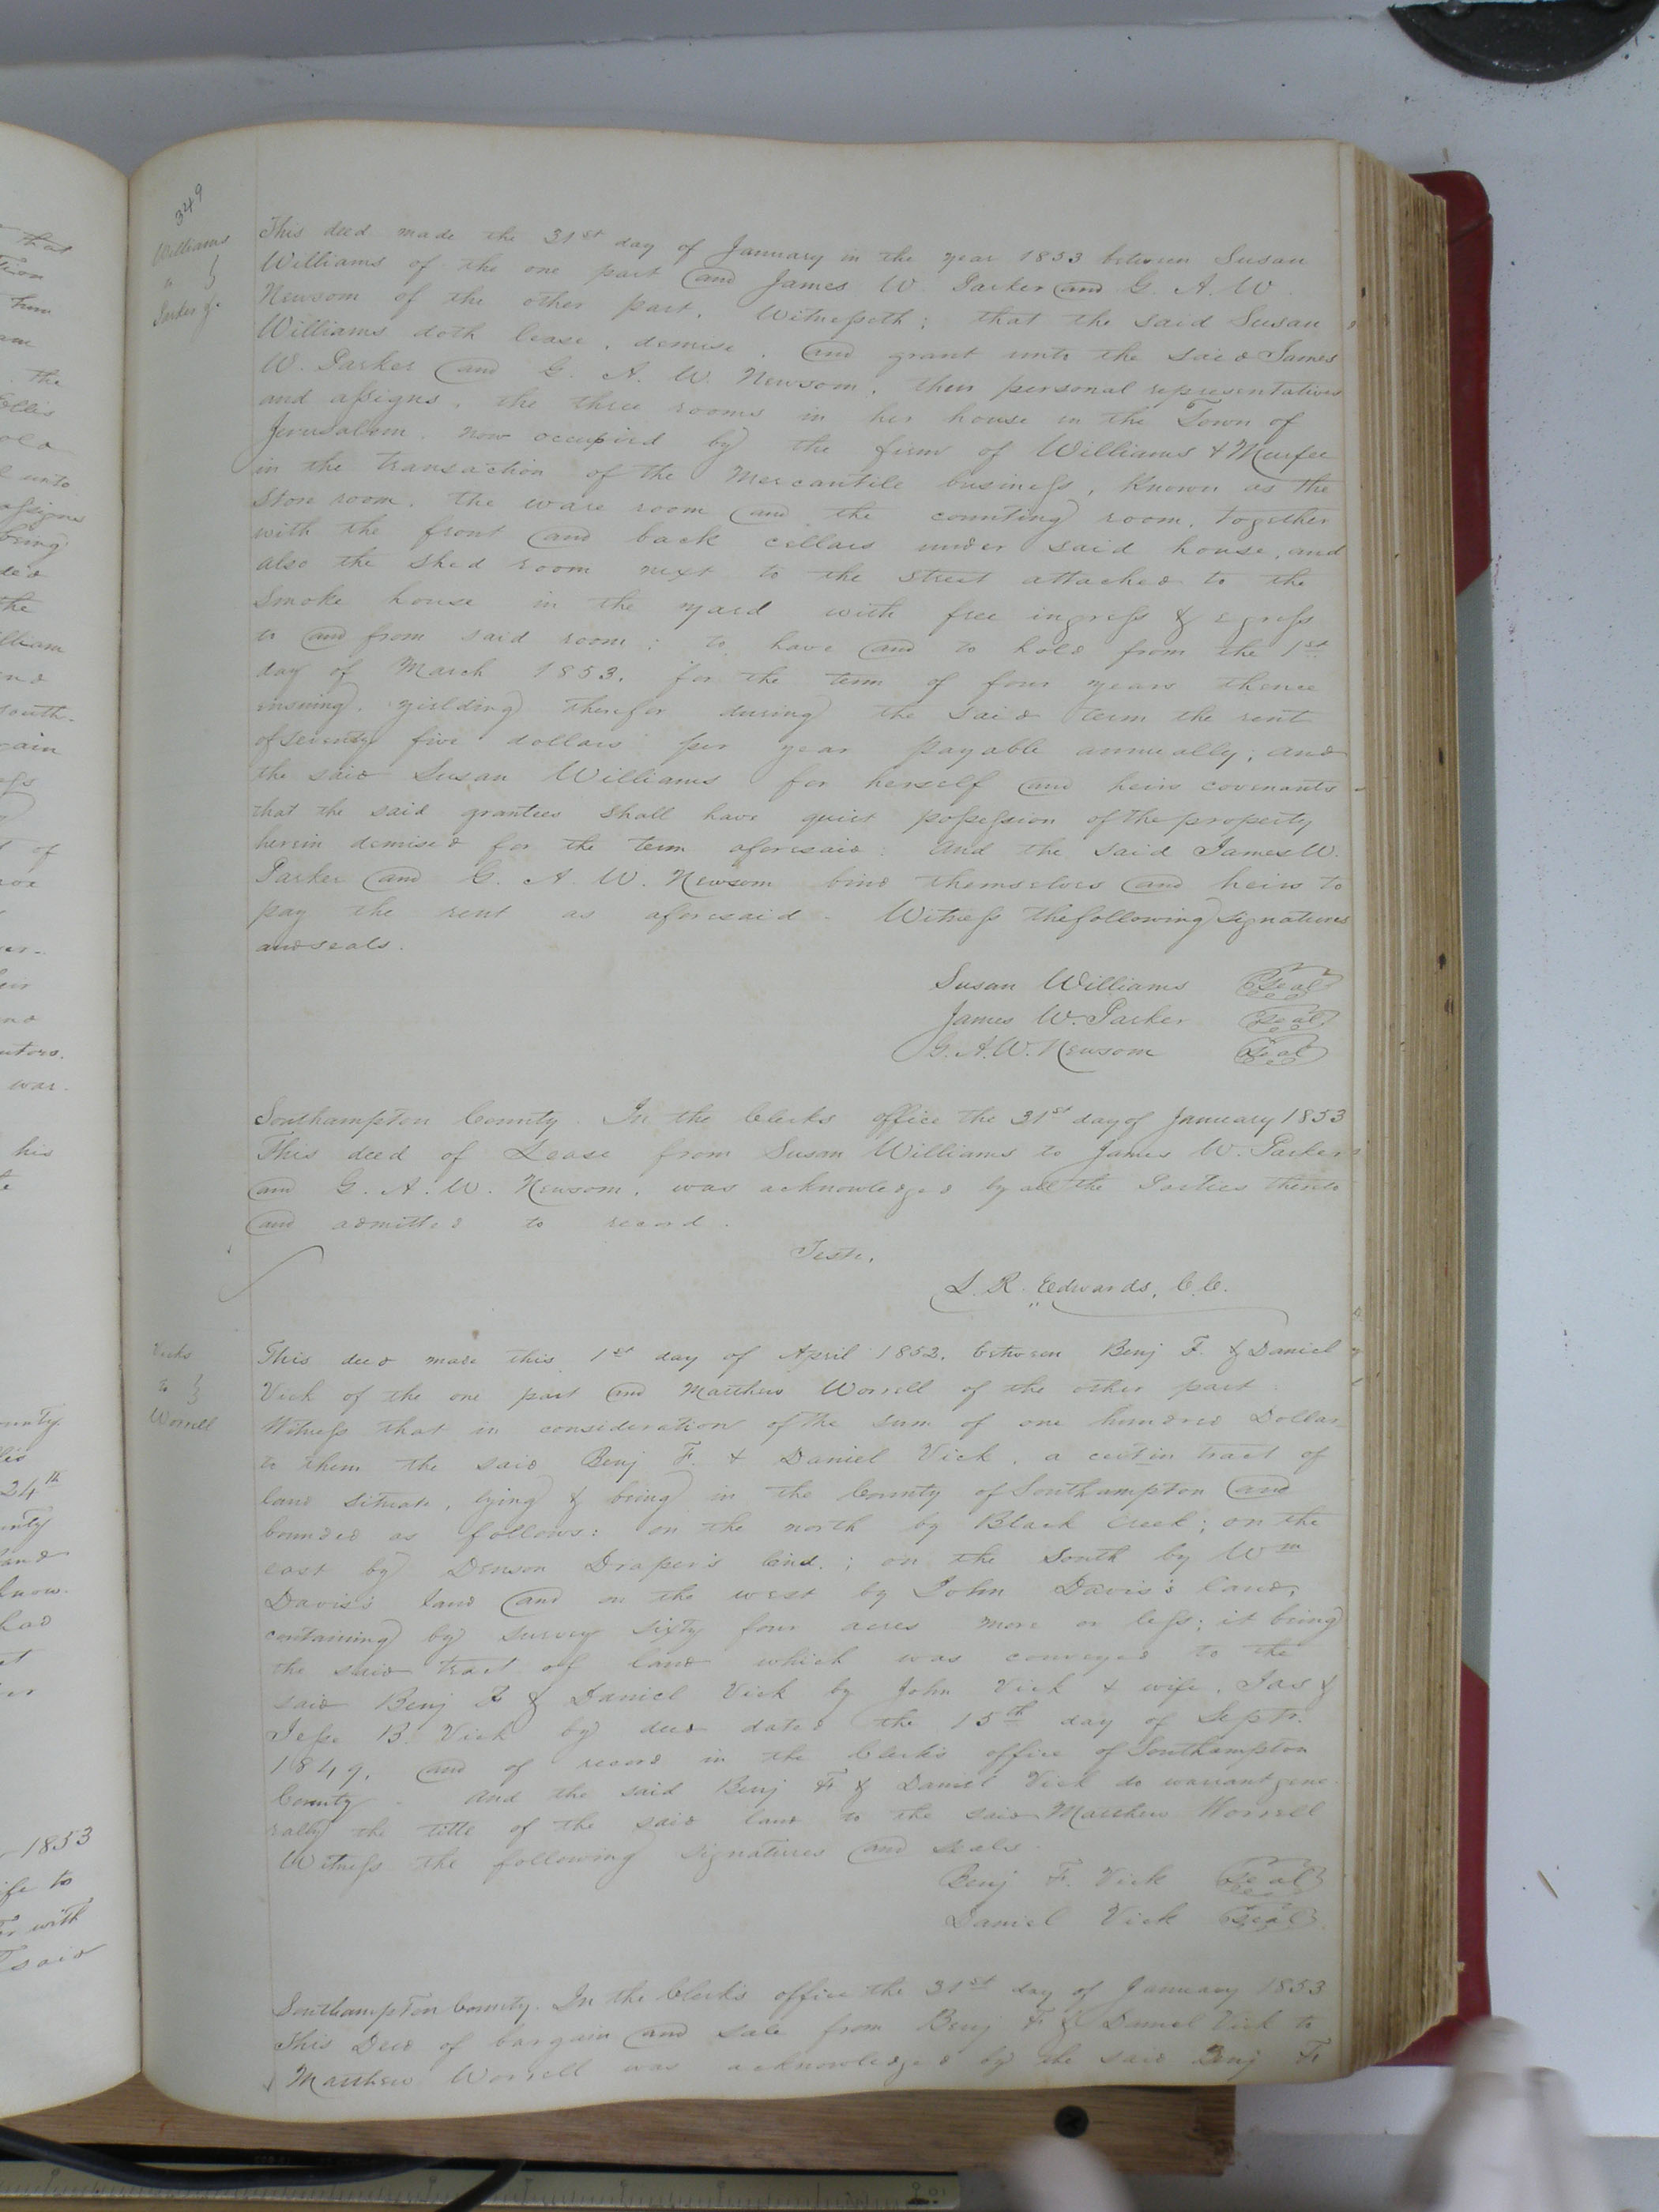 349
Williams
to }
Parker &c
This deed made the 31st day of January in the year 1853 between Susan
Williams of the one part and James W. Parker and G. A. W.
Newsom of the other part. Witnesseth; that the said Susan
Williams doth lease, demise, and grant unto the said James
W. Parker and G. A. W. Newsom, their personal representatives
and assigns, the three rooms in her house in the Town of
Jerusalem, now occupied by the firm of Williams & Murfee
in the transaction of the Mercantile business, known as the
Store room, the ware room and the counting room, together
with the front and back cellars under said house, and
also the shed room next to the street attached to the
smoke house in the yard with free ingress & egress
to and from said room; to have and to hold from the 1st
day of March 1853, for the term of four years thence
ensuing, yielding therefor during the said term the rent
of seventy five dollars per year payable annually; and
the said Susan Williams for herself and heirs covenants
that the said grantees shall have quiet possession of the property
herein demised for the term aforesaid. And the said James W.
Parker and G. A. W. Newsom bind themselves and heirs to
pay the rent as aforesaid. Witness the following signatures
and seals.
Susan Williams Seal
James W. Parker Seal
G. A. W. Newsom Seal
Southampton County. In the Clerks office the 31st day of January 1853
This deed of Lease from Susan Williams to James W. Parker
and G. A. W. Newsom, was acknowledged by all the Parties thereto
and admitted to record.
Teste,
L. R. Edwards, C.C.
Vicks
to }
Worrell
This deed made this 1st day of April 1852, between Benj F. & Daniel
Vick of the one part and Matthew Worrell of the other part.
Witness that in consideration of the sum of one hundred Dollars
to them the said Benj F. & Daniel Vick, a certin tract of
land situate, lying & being in the County of Southampton and
bounded as follows: on the north by Black Creek; on the
east by Denson Draper's land; on the South by Wm
Davis's land and on the west by John Davis's land;
containing by survey sixty four acres more or less; it being
the said tract of land which was conveyed to the
said Benj F & Daniel Vick by John Vick & wife, Jas &
Jesse B. Vick by deed dated the 15th day of Septr.
1849, and of record in the Clerk's office of Southampton
County. And the said Benj F. & Daniel Vick do warrant gene
rally the title of the said land to the said Matthew Worrell
Witness the following signatures and seals.
Benj F. Vick Seal
Daniel Vick Seal
Southampton County. In the Clerk's office the 31st day of January 1853
This Deed of bargain and sale from Benj F & Daniel Vick to
Matthew Worrell was acknowledged by the said Benj F.